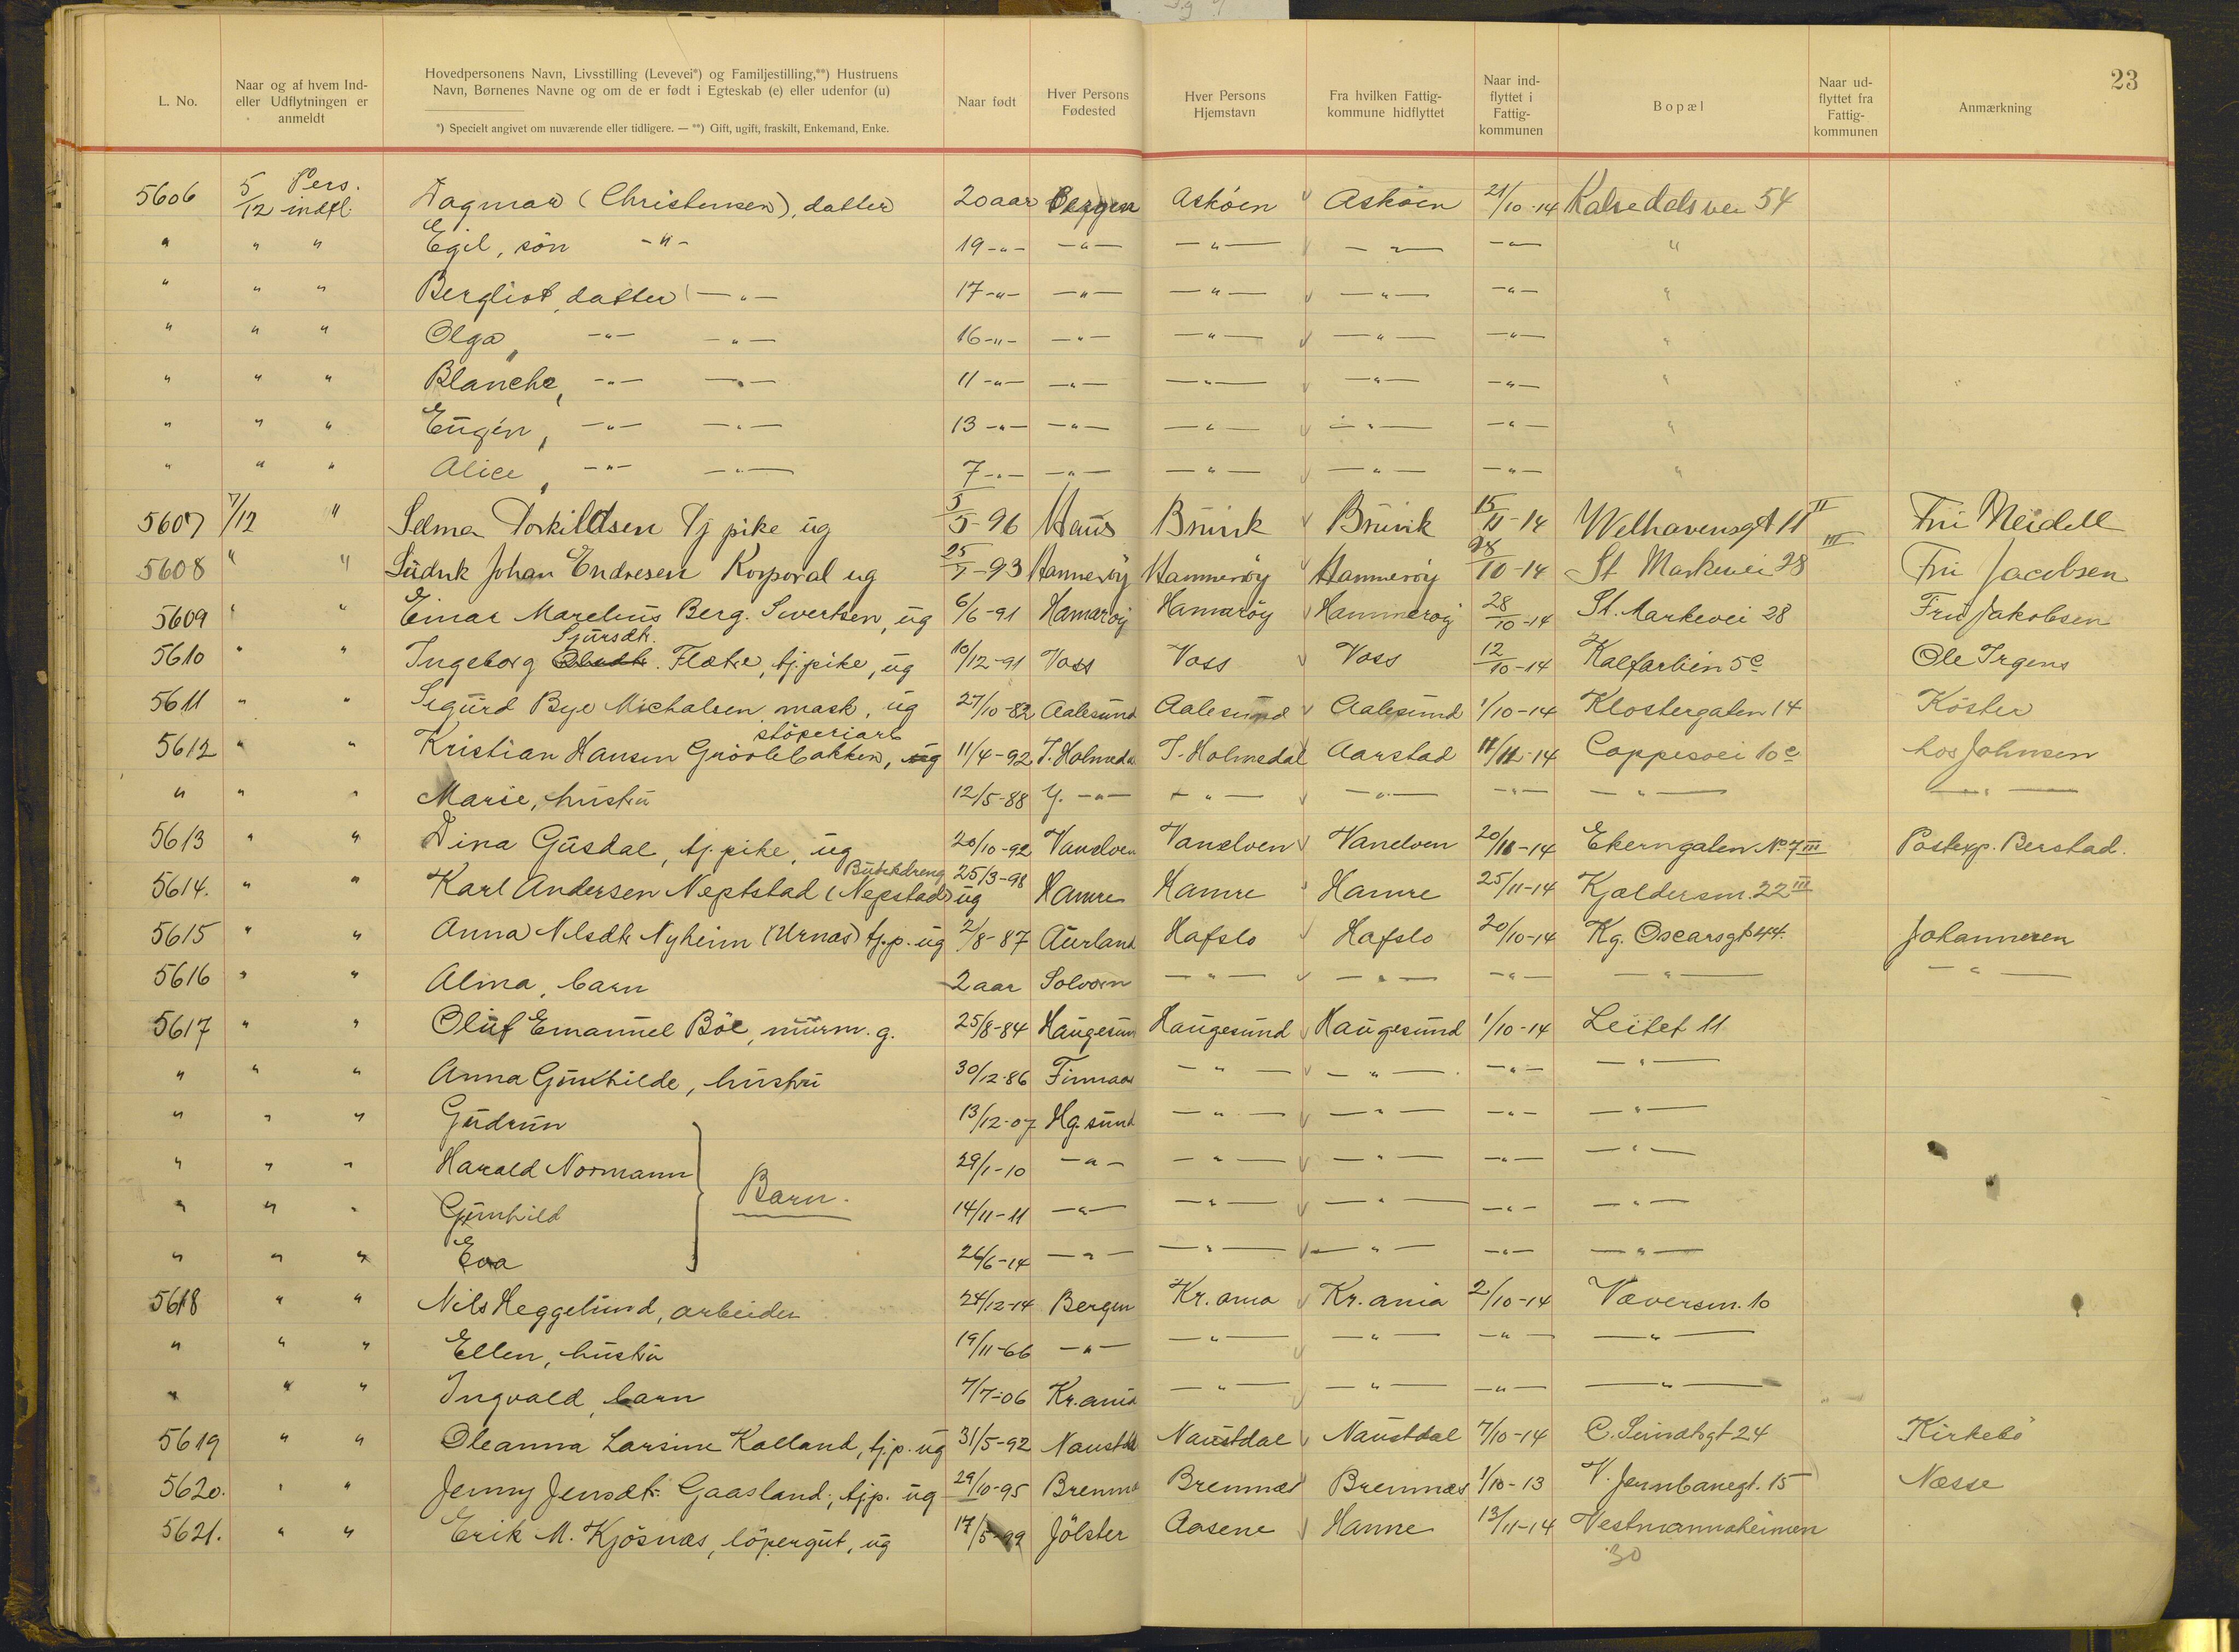 23
L. No.
Naar og af hvem Ind-
eller Udflytningen er
anmeldt
Hovedpersonens Navn, Livsstilling (Levevei*) og Familjestilling,**) Hustruens
Navn, Børnenes Navne og om de er født i Egteskab (e) eller udenfor (u)
*) Specielt angivet om nuværende eller tidligere. — **) Gift, ugift, fraskilt, Enkemand, Enke.
Naar født
Hver Persons
Fødested
Hver Persons
Hjemstavn
Fra hvilken Fattig-
kommune hidflyttet
Naar ind-
flyttet i
Fattig-
kommunen
Bopæl
Naar ud-
flyttet fra
Fattig-
kommunen
Anmærkning
5606 5/12 Pers. indfl. Dagmar (Christensen), datter 20 aar Bergen Askøen Askøen 21/10-14 Kalvedalsvei 54
" " " Egil, søn -"- 19 -"- -"- -"- -"- -"- "
" " " Bergliot, datter -"- 17 -"- -"- -"- -"- -"- "
" " " Olga, -"- -"- 16 -"- -"- -"- -"- -"- "
" " " Blanche, -"- -"- 11 -"- -"- -"- -"- -"- "
" " " Eugén, -"- -"- 13 -"- -"- -"- -"- -"- "
" " " Alice, -"- -"- 7 -"- -"- -"- -"- -"- "
5607 7/12 " Selma Torkildsen Tj pike ug 5/5-96 Haus Bruvik Bruvik 15/11-14 Welhavensgt 11 II Fru Meidell
5608 " " Ludvik Johan Endresen Korporal ug 25/7-93 Hammerøy Hammerøy Hammerøy 28/10-14 St Markevei 28 III Fru Jacobsen
5609 " " Einar Marelius Berg. Sivertsen, ug 6/6-91 Hamarøy Hamarøy Hammerøy 28/10-14 St. Markevei 28 Fru Jakobsen
5610 " " Ingeborg Sjursdt. Flætre, tj.pike, ug 10/12-91 Voss Voss Voss 12/10-14 Kalfarlien 5c Ole Irgens
5611 " " Sigurd Bye Michalsen mask, ug 27/10-82 Aalesund Aalesund Aalesund 1/10-14 Klostergaten 14 Köster
støperiarb
5612 " " Kristian Hansen Grøvlebakken, ug 11/4-92 I. Holmeda I. Holmedal Aarstad 11/11-14 Coppesvei 10c hos Johnsen
" " " Marie, hustru 12/5-88 Y. -"- -"- -"- -"- -"- -"-
5613 " " Dina Gusdal, tj.pike, ug 20/10-92 Vanelven Vanelven Vanelven 20/11-14 Ekerngaten No 7 III Postexp. Berstad.
Butikdreng
5614. " " Karl Andersen Neptstad (Nepstad) ug 25/3-98 Hamre Hamre Hamre 25/11-14 Kjældersm. 22 III
5615 " " Anna Nilsdt. Nyheim (Urnas) tj.p. ug 2/8-87 Aurland Hafslo Hafslo 20/10-14 Kg. Oscarsgt 44. Johannesen
5616 " " Alma, barn 2 aar Solvorn -"- -"- -"- -"- -"-
5617 " " Oluf Emanuel Böe, murm. g. 25/8-84 Haugesun Haugesund Haugesund 1/10-14 Leitet 11
" " " Anna Gunhilde, hustru 30/12-86 Finnaas -"- -"- -"- -"-
" " " Gudrun 13/12-07 Hg.sund -"- -"- -"- -"-
" " " Harald Normann 29/1-10 -"- -"- -"- -"- -"-
Barn.
" " " Gunhild 14/11-11 -"- -"- -"- -"- -"-
" " " Eva 26/6-14 -"- -"- -"- -"- -"-
5618 " " Nils Heggelund, arbeider 24/12-14 Bergen Kr.ania Kr.ania 2/10-14 Væversm. 10
" " " Ellen, hustru 19/11-66 -"- -"- -"- -"- -"-
" " " Ingvald, barn 7/7-06 Kr.ania -"- -"- -"- -"-
5619 " " Oleanna Larsine Kalland, tj.p. ug 31/5-92 Naustdal Naustdal Naustdal 7/10-14 C. Sundtsgt 24 Kirkebø
5620. " " Jenny Jensdt. Gaasland, tj.p. ug 29/10-95 Bremne Bremnes Bremnes 1/10-13 V. Jernbanegt. 15 Næsse
5621. " " Erik M. Kjøsnæs, løpergut, ug 17/5-99 Jölster Aasene Hanne 13/11-14 Vestmannaheimen
30